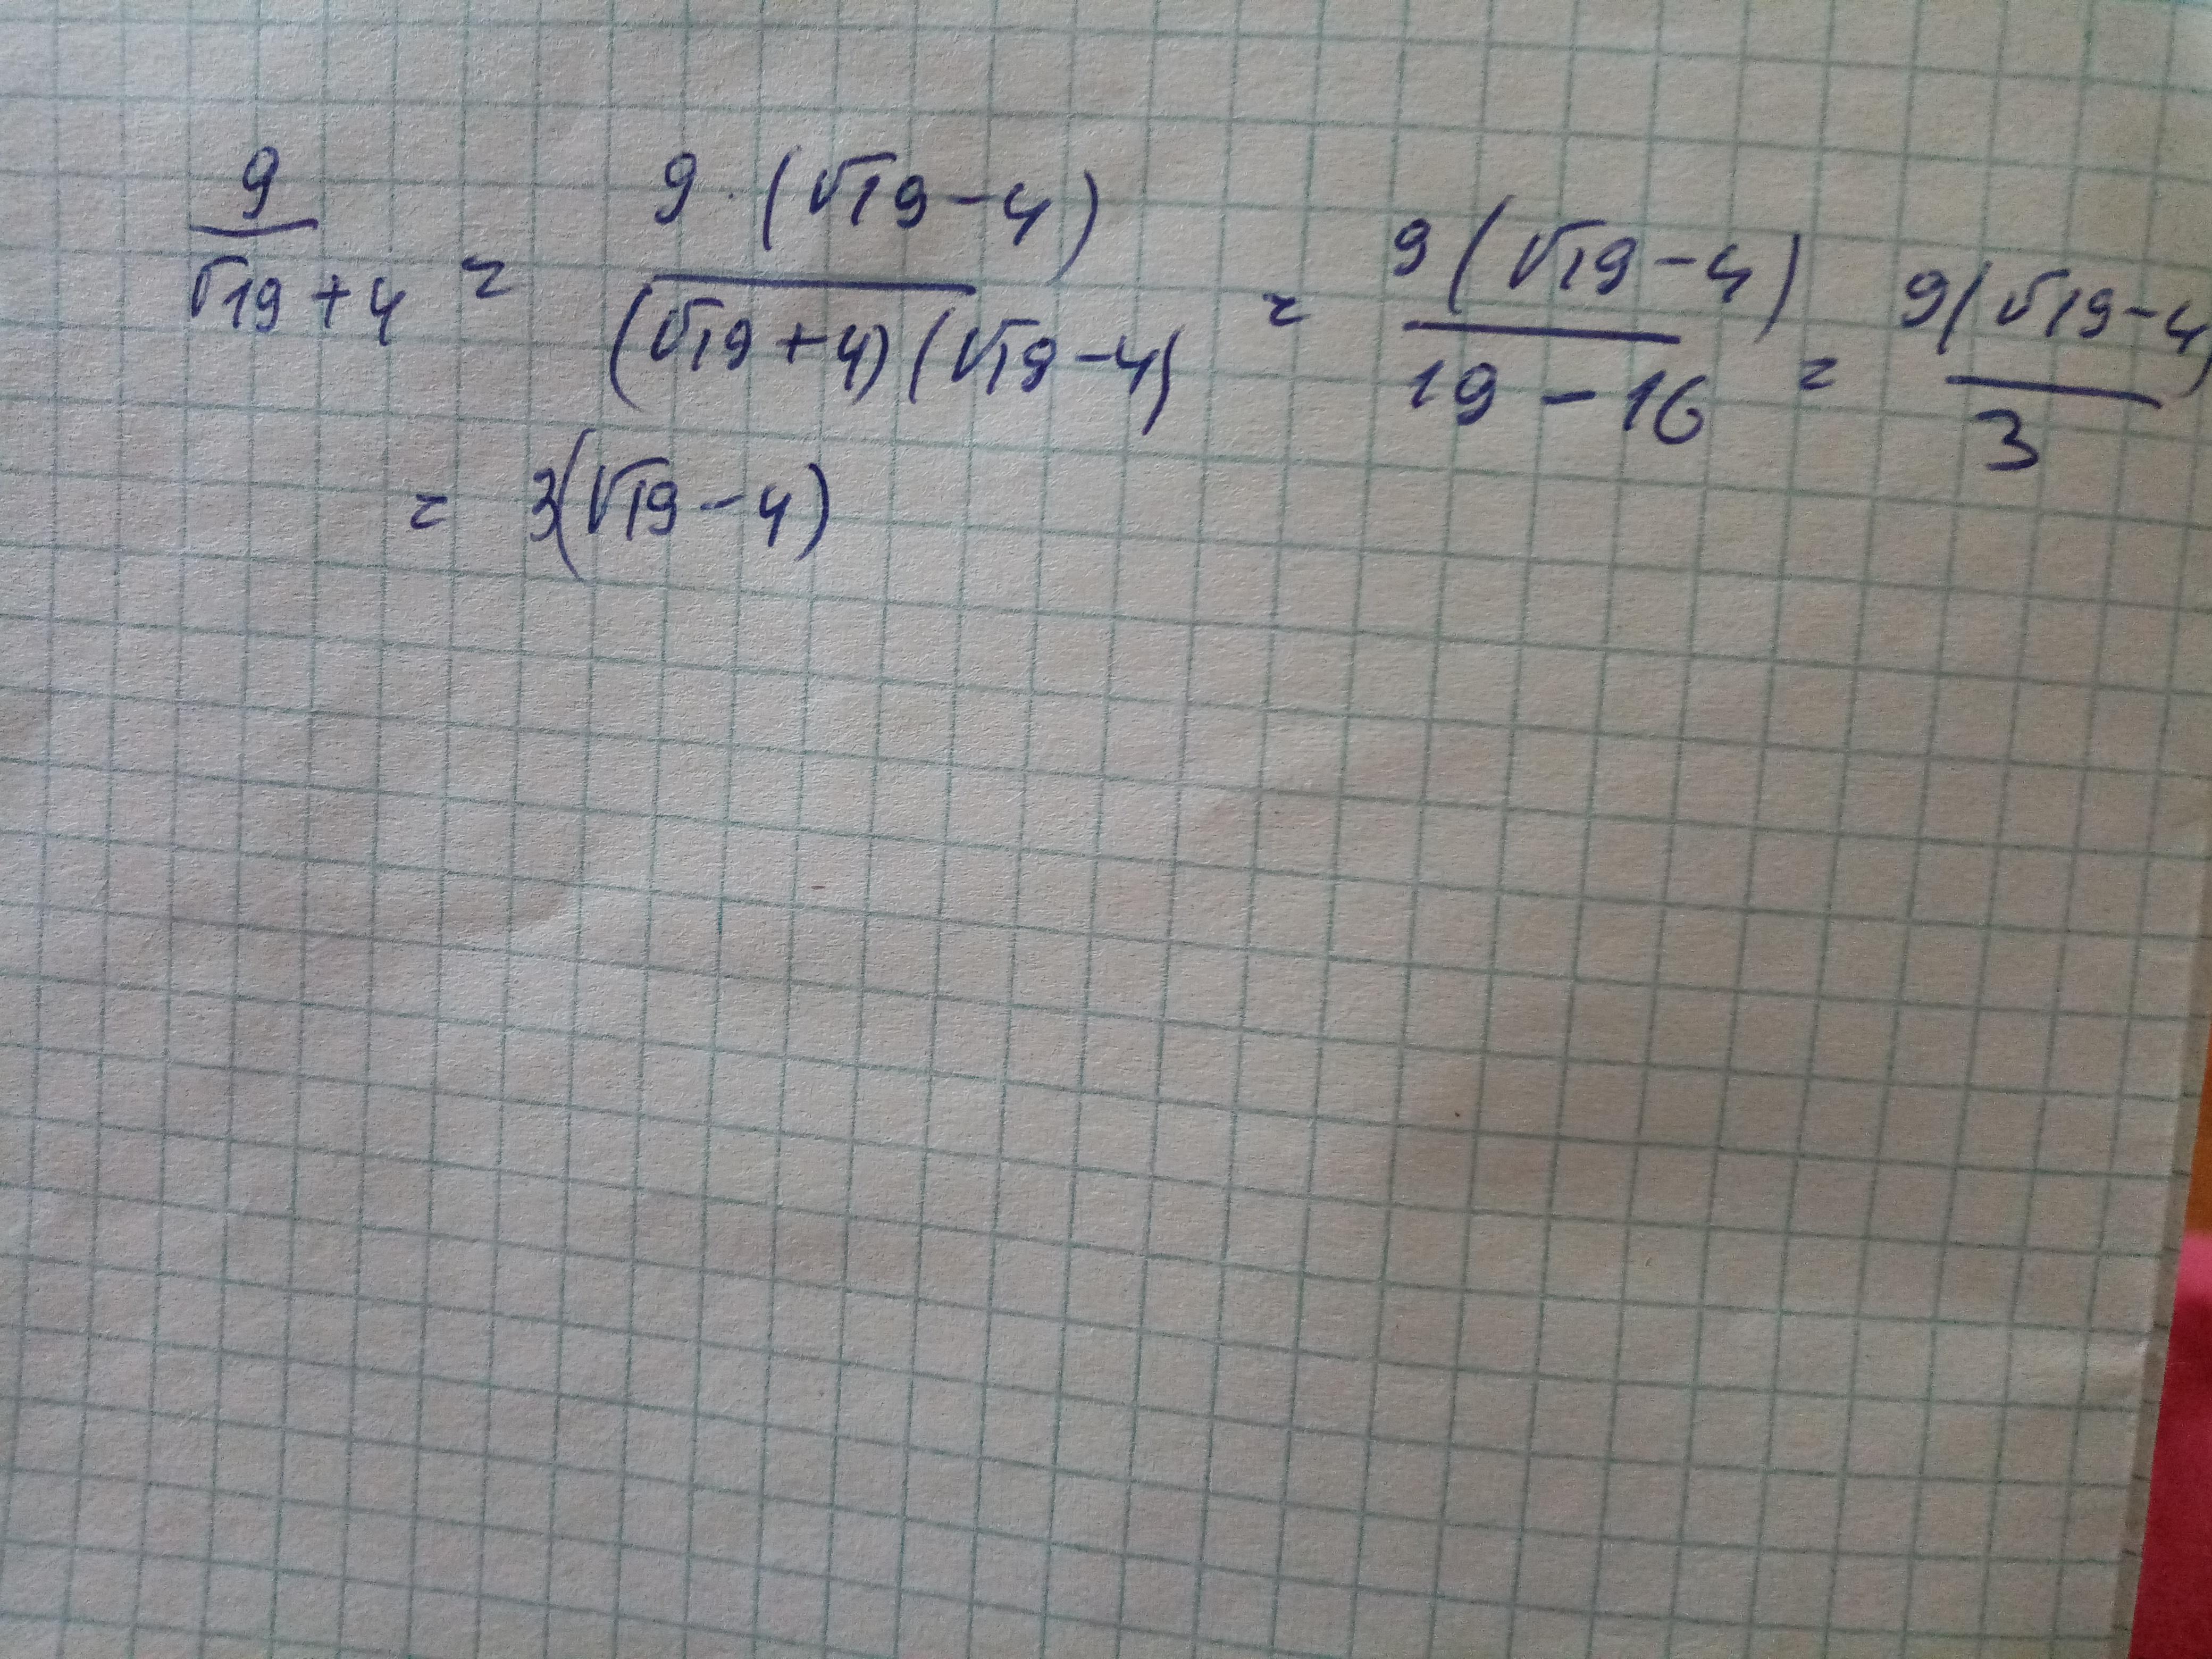 9/(√19+4) = 9·(√19-4)/((√19+4)(√19-4)) = 9(√19-4)/(19-16) = 9(√19-4)/3
= 3(√19-4)